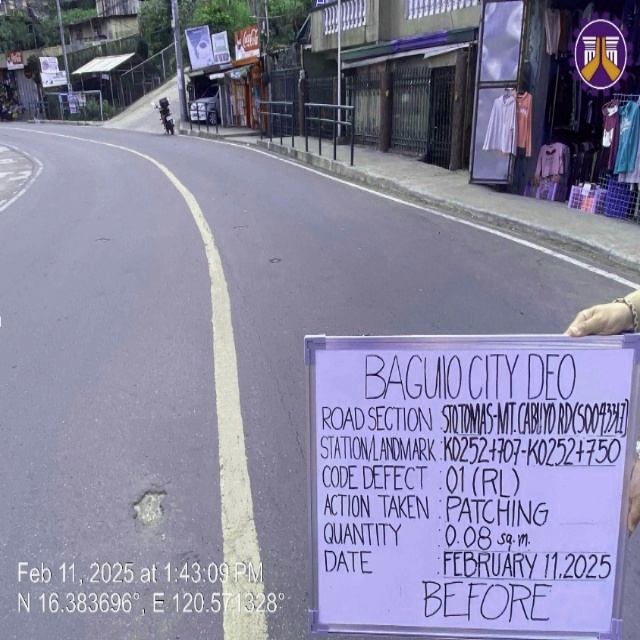 Coca-Cola
BAGUIO CITY DEO
ROAD SECTION STO TOMAS-MT. CABUYO RD (S00939LZ)
STATION/LANDMARK : K0252+707-K0252+750
CODE DEFECT : 01 (RL)
ACTION TAKEN : PATCHING
QUANTITY : 0.08 sq.m.
DATE : FEBRUARY 11, 2025
BEFORE
Feb 11, 2025 at 1:43:09 PM
N 16.383696°, E 120.571328°